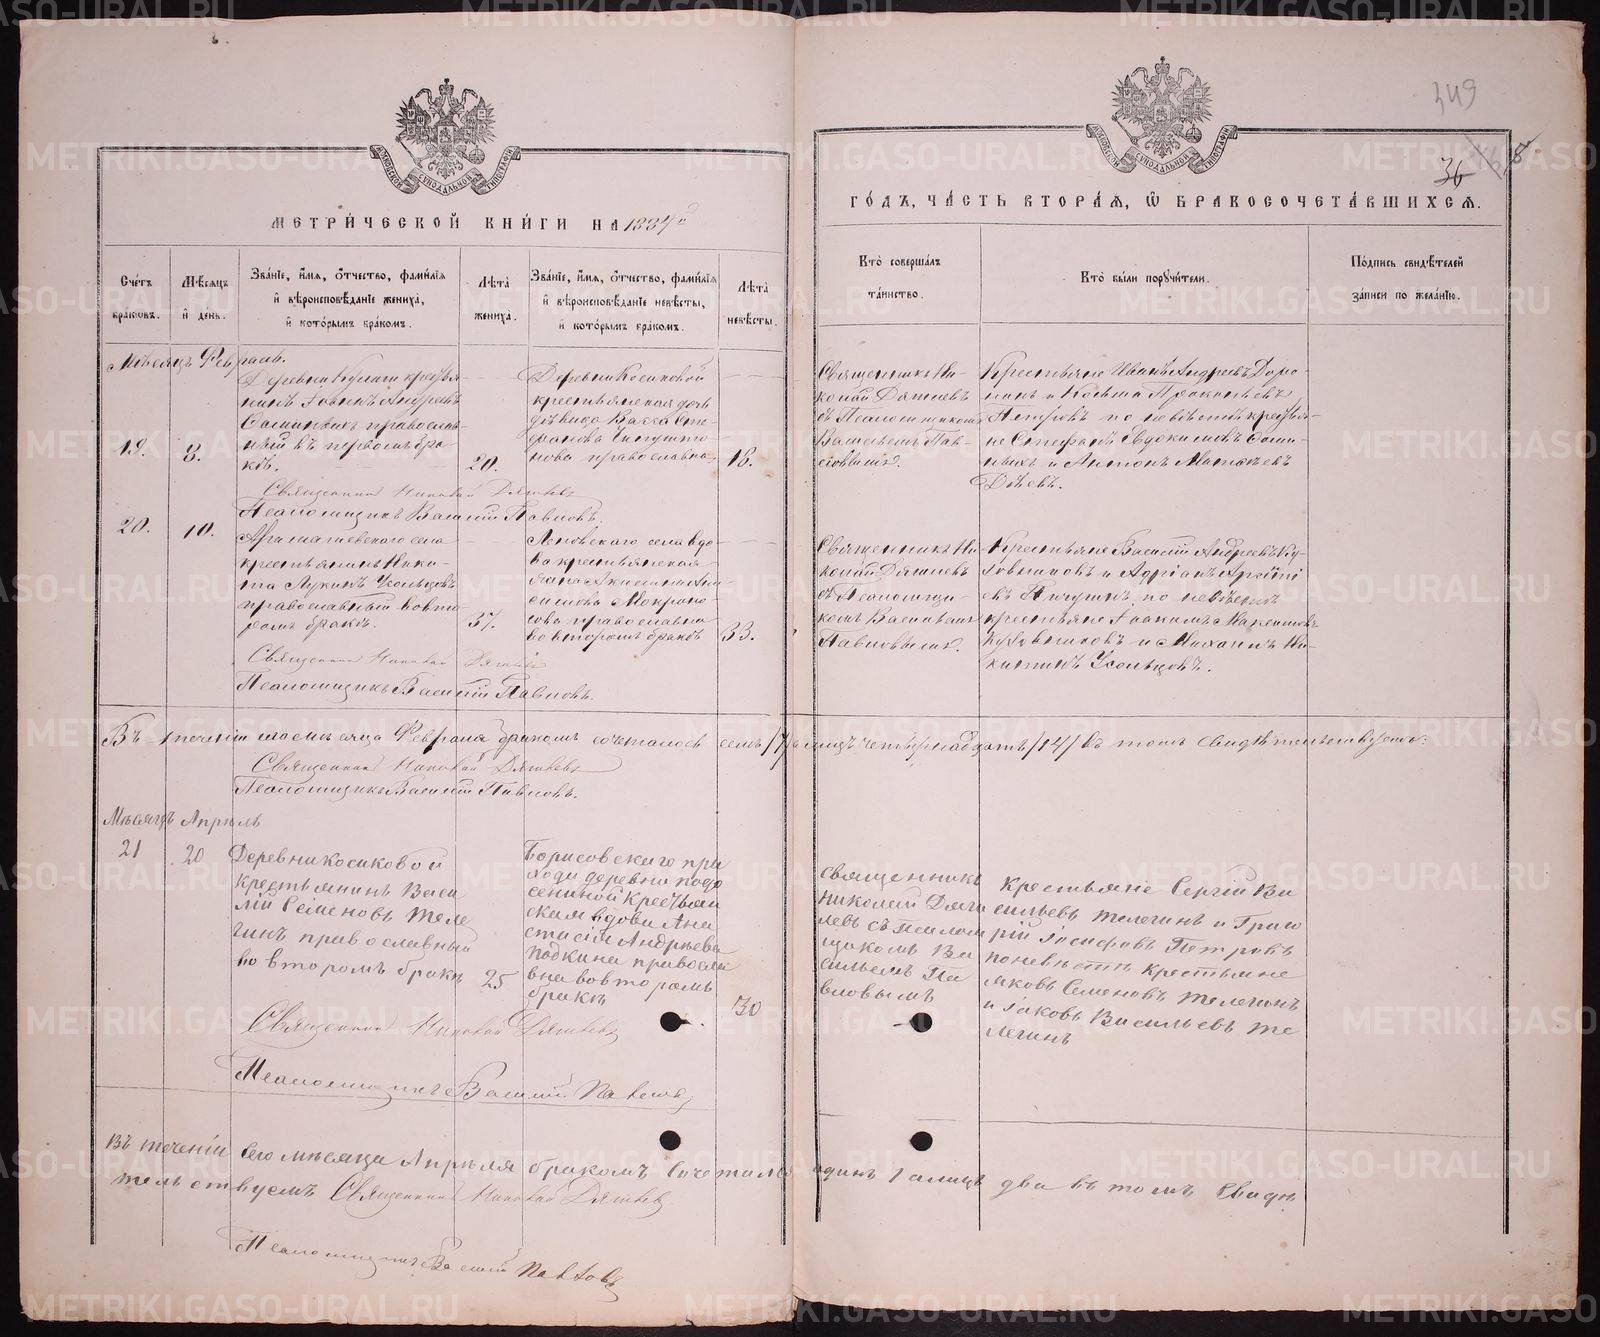 МЕТРИЧЕСКОЙ КНИГИ НА 1884й
ГОДЪ, ЧАСТЬ ВТОРАЯ, Ѿ БРАКОСОЧЕТАВШИХСЯ.
349
36
МОСКОВСКОЙ СѴНОДАЛЬНОЙ ТИПОГРАФІИ
МОСКОВСКОЙ СѴНОДАЛЬНОЙ ТИПОГРАФІИ
Счетъ
браковъ.
Мѣсяцъ
и день.
Званіе, имя, отчество, фамилія
и вѣроисповѣданіе жениха,
и которымъ бракомъ.
Лѣта
жениха.
Званіе, имя, отчество, фамилія
и вѣроисповѣданіе невѣсты,
и которымъ бракомъ.
Лѣта
невѣсты.
Кто совершалъ
таинство.
Кто были поручители.
Подпись свидѣтелей
записи по желанію.
Мѣсяцъ Февраль.
19.
8.
Деревни крестья-
нинъ Андреевъ
православ-
ный въ первомъ бра
кѣ.
20.
Деревни Косиковой
крестьянская дочь
дѣвица Васса Сте
фанова
православна,
18.
Священникъ Ни-
колай Дягилевъ
съ Псаломщикомъ
Васильемъ Пав-
ловымъ.
Крестьяне Иванъ Андреевъ Доро-
нинъ и Козьма Прокопьевъ
по невѣстѣ крестья-
не Стефанъ Евдокимовъ
и Антонъ Матвѣевъ
Дѣевъ.
Священникъ Николай Дягилевъ
Псаломщикъ Василій Павловъ.
20.
10.
Арамашевскаго села
крестьянинъ Ники-
та Лукинъ Усольцовъ
православный вовто-
ромъ бракѣ.
37.
села вдо-
ва крестьянская
жена Акилина Ани-
симова Мокроно-
сова православна
во второмъ бракѣ
33.
Священникъ Ни-
колай Дягилевъ
съ Псаломщи-
комъ Васильемъ
Павловымъ.
Крестьяне Василій Андреевъ Ку-
ховниковъ и Адріанъ
евъ Пичугинъ, по невѣстѣ
крестьяне Іоакимъ
Куховниковъ и Михаилъ Ни-
китинъ Усольцовъ.
Священникъ Николай Дягилевъ
Псаломщикъ Василій Павловъ.
Въ теченіи мѣсяца Февраля бракомъ сочеталось семь /7/ а лицъ четырнадцать /14/ въ томъ свидѣтельствуемъ:
Священникъ Николай Дягилевъ
Псаломщикъ Василій Павловъ.
Мѣсяцъ Апрѣль
21
20
Деревни косиковой
крестьянинъ Васи
лій Семеновъ Теле
гинъ православный
во второмъ бракѣ
25
Борисовскаго при
хода деревни подо
сениной Крестьян
скам вдова Ана
стасія Андрѣева
Подкина православ
вна вовторомъ
бракѣ
30
священникъ
Николай Дяги
левъ съ псалом
щикомъ Ва
сильемъ Па
вловымъ
крестьяне Сергій Ва
сильевъ телегинъ и Григо
рій Іосифовъ Петровъ
поневѣстѣ крестьяне
яковъ Семеновъ телегинъ
и Іаковъ Васильевъ те
легинъ
Священникъ Николай Дягилевъ
Псаломщикъ Василій Павловъ
въ теченіи сего мѣсяца Апрѣля бракомъ сочеталось одинъ 1 а лицъ два въ томъ Свидѣ
тельствуемъ Священникъ Николай Дягилевъ
Псаломщикъ Василій Павловъ